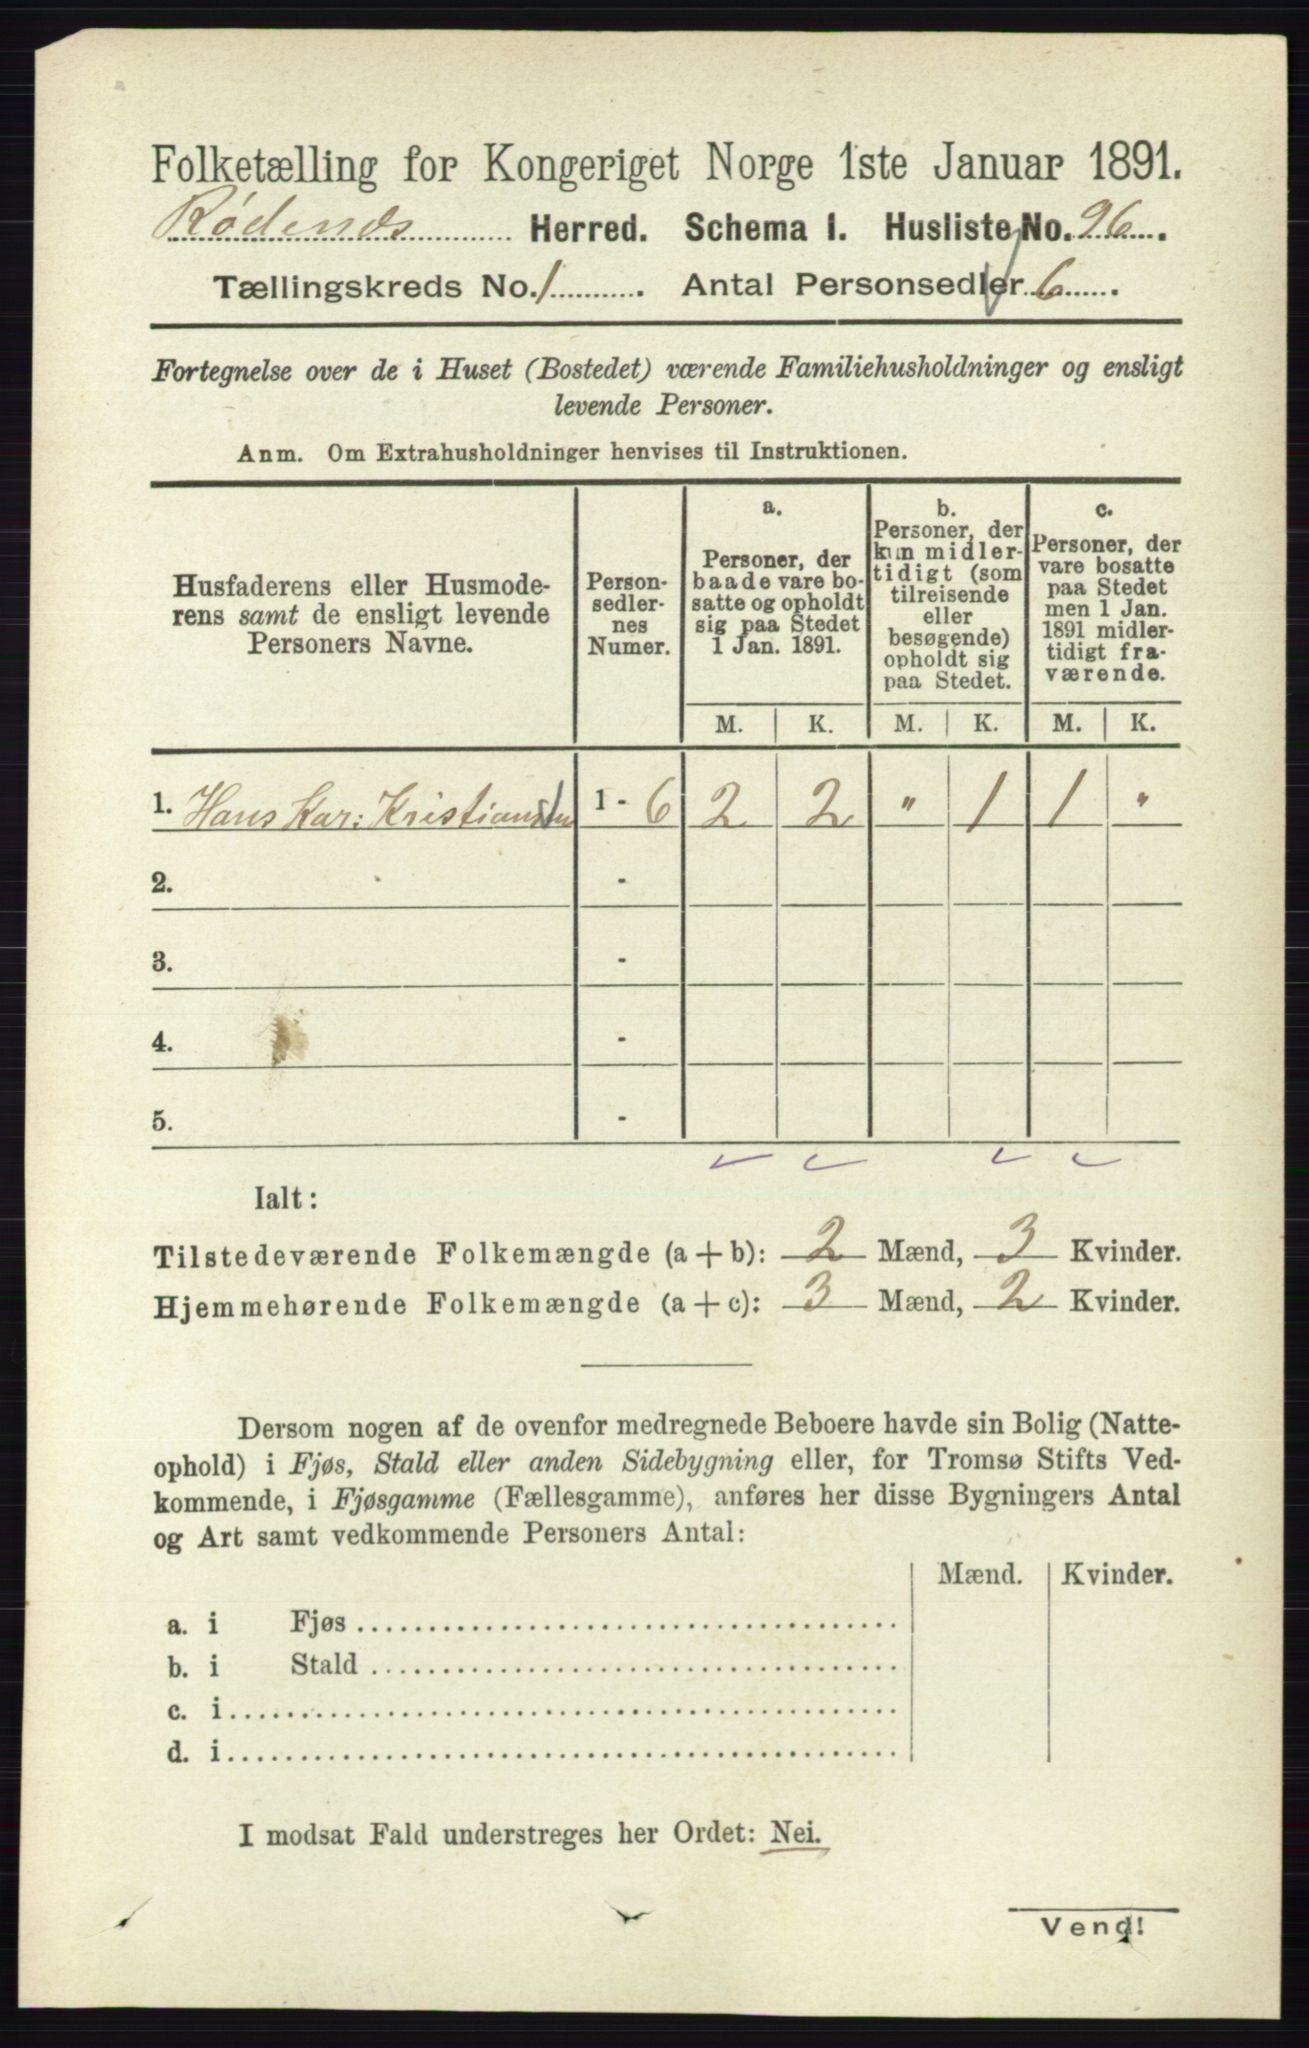 Folketælling for Kongeriget Norge 1ste Januar 1891.
Rødenæs Herred. Schema I. Husliste No. 96.
Tællingskreds No. 1. Antal Personsedler 6.
Fortegnelse over de i Huset (Bostedet) værende Familiehusholdninger og ensligt
levende Personer.
Anm. Om Extrahusholdninger henvises til Instruktionen.
Husfaderens eller Husmode-
rens samt de ensligt levende
Personers Navne.
Person-
sedler-
nes
Numer.
a.
Personer, der
baade vare bo-
satte og opholdt
sig paa Stedet
1 Jan. 1891.
b.
Personer, der
kun midler-
tidigt (som
tilreisende
eller
besøgende)
opholdt sig
paa Stedet.
c.
Personer, der
vare bosatte
paa Stedet
men 1 Jan.
1891 midler-
tidigt fra-
værende.
M. K. M. K. M. K.
1. Hans Kar: Kristiansen 1 - 6 2 2 " 1 1 "
2. -
3. -
4. -
5. -
Ialt:
Tilstedeværende Folkemængde (a + b): 2 Mænd, 3 Kvinder.
Hjemmehørende Folkemængde (a + c): 3 Mænd, 2 Kvinder.
Dersom nogen af de ovenfor medregnede Beboere havde sin Bolig (Natte-
ophold) i Fjøs, Stald eller anden Sidebygning eller, for Tromsø Stifts Ved-
kommende, i Fjøsgamme (Fællesgamme), anføres her disse Bygningers Antal
og Art samt vedkommende Personers Antal:
Mænd. Kvinder.
a. i Fjøs
b. i Stald
c. i
d. i
I modsat Fald understreges her Ordet: Nei.
Vend!